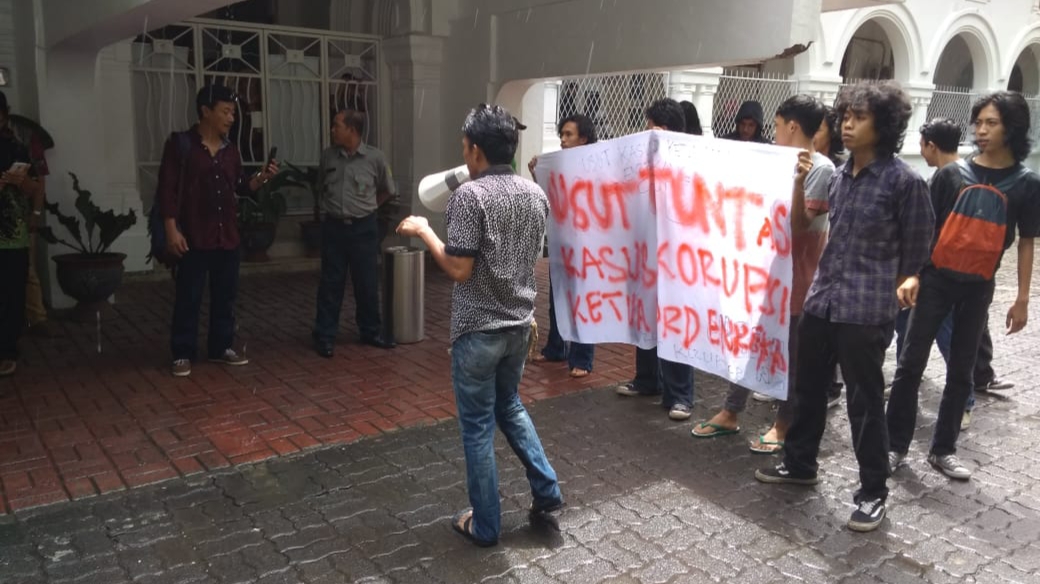 USUT TUNTAS
KASUS KORUPSI
KETUA DPRD ENREKANG